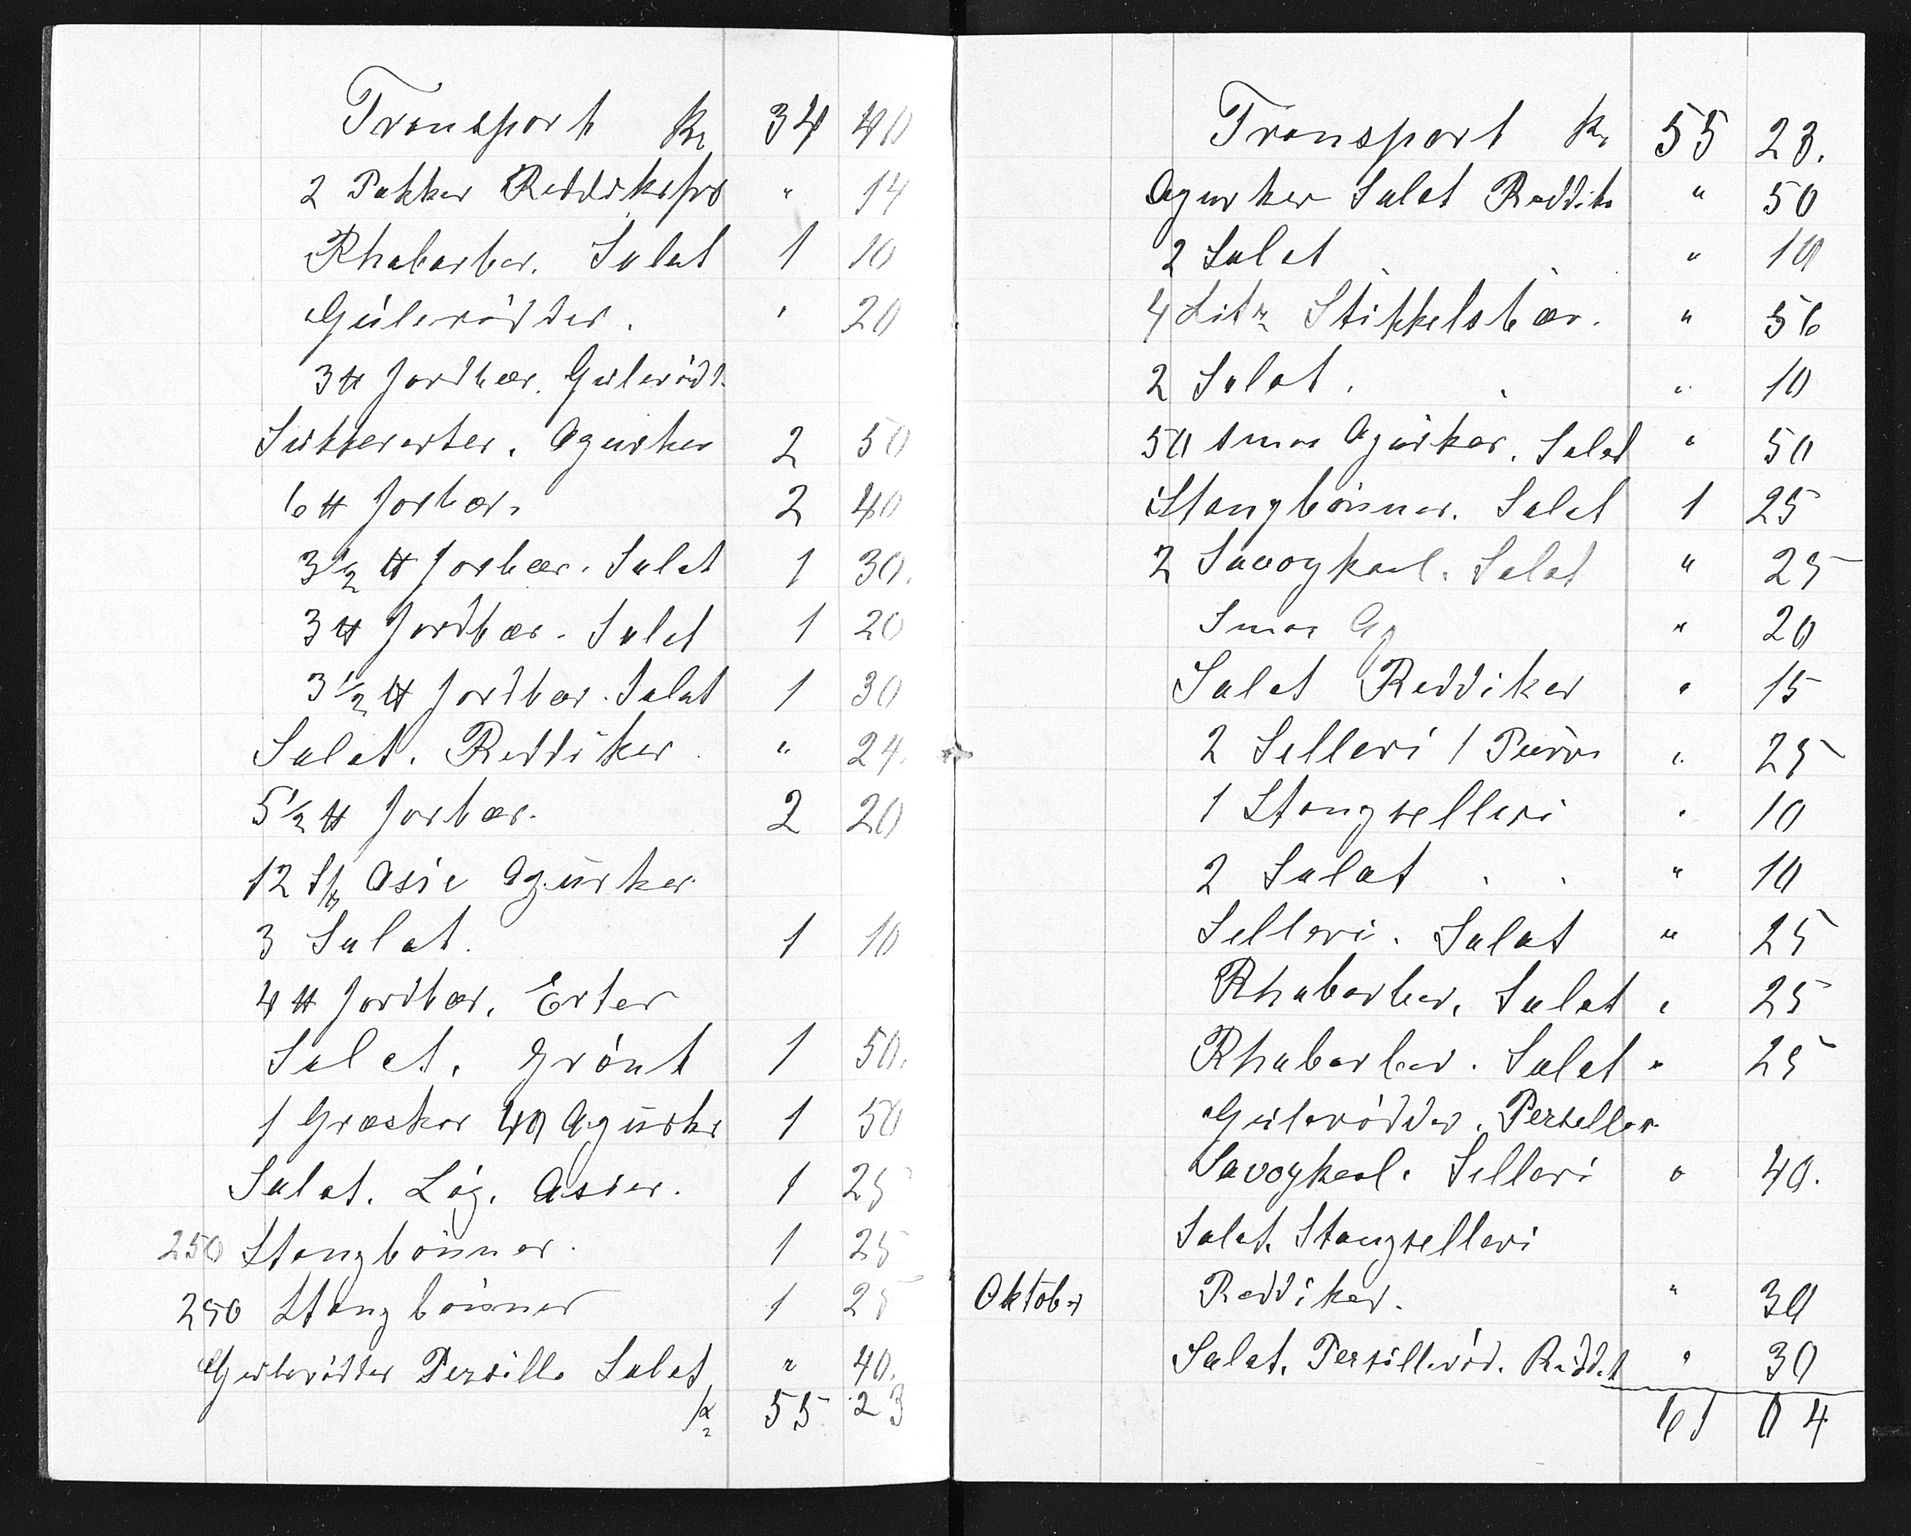 Transport Kr 34 40
2 Pakker Reddiksfrö " 14
Rhabarber. Salat 1 10
Gúlerödder. " 20
3 ℔ Jordbær. Gulerödd.
Sukkererter. Agurker 2 50
6 ℔ Jorbær. 2 40
3½ ℔ Jorbær. Salat 1 30.
3 ℔ Jordbær. Salat 1 20
3½ ℔ Jordbær. Salat 1 30
Salat. Reddiker " 24.
5½ ℔ Jorbær. 2 20
12 Stk Asie Agurker
3 Salat. 1 10
4 ℔ Jordbær. Erter
Salat. Grönt 1 50.
1 Græskar 40 Agurkr 1 50
Salat. Lög. Asier. 1 25
250 Stangbönner. 1 25
250 Stangbönner 1 25
Gulerödder Persille Salat " 40.
Kr 55 23
Transport Kr 55 23.
Agurker Salat Reddik " 50
2 Salat " 10
4 Litr Stikkelsbær. " 56
2 Salat. " 10
50 smaa Agurker. Salat " 50
Stangbönner. Salat 1 25
2 Savoykaal. Salat " 25
Smaa Ag " 20
Salat Reddiker " 15
2 Selleri 1 Purre " 25
1 Stangselleri " 10
2 Salat " 10
Selleri. Salat " 25
Rhabarber. Salat " 25
Rhabarber. Salat " 25
Gulerödder. Perseller
Savoykaal. Selleri " 40.
Salat. Stangselleri
Oktober Reddiker. " 30
Salat. Persilleröd. Reddik " 30
61 04